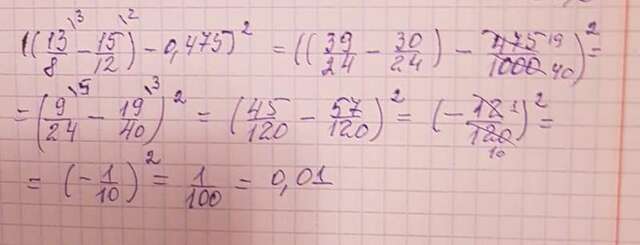 ((13/8 \3 - 15/12 \2) - 0,475)² = ((39/24 - 30/24) - 475 19/1000 40)² =
= (9/24 \5 - 19/40 \3)² = (45/120 - 57/120)² = (- 12 1/120 10)² =
= (- 1/10)² = 1/100 = 0,01